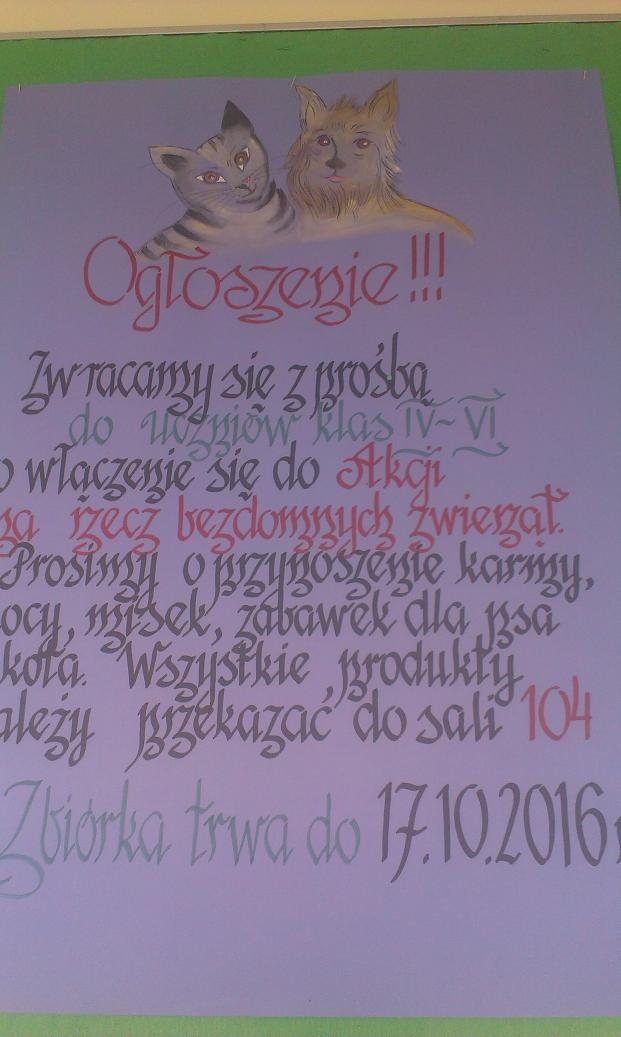 Ogłoszenie!!!
Zwracamy się z prośbą
do uczniów klas IV-VI
o włączenie się do Akcji
na rzecz bezdomnych zwierząt.
Prosimy o przynoszenie karmy,
ocy, misek, zabawek dla psa
kota. Wszystkie produkty
ależy przekazać do sali 104
Zbiórka trwa do 17.10.2016